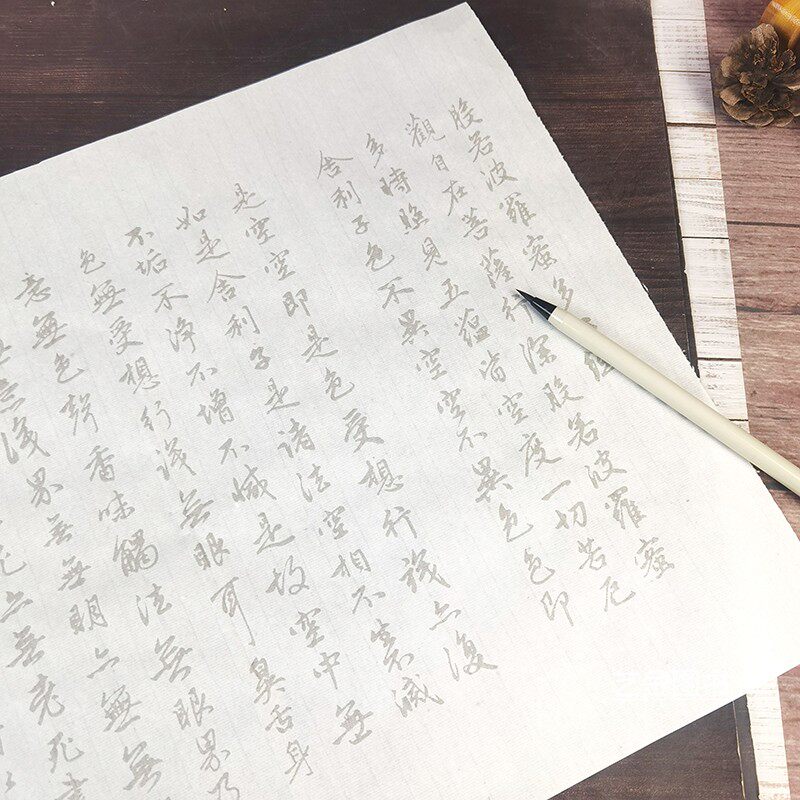 般若波羅蜜多經
觀自在菩薩行深般若波羅蜜
多時照見五蘊皆空度一切苦厄
舍利子色不異空空不異色色即
是空空即是色受想行識亦復
如是舍利子是諸法空相不生不滅
不垢不淨不增不減是故空中無
色無受想行識無眼耳鼻舌身
意無色聲香味觸法無眼界乃
意識界無無明亦無無
亦無老死